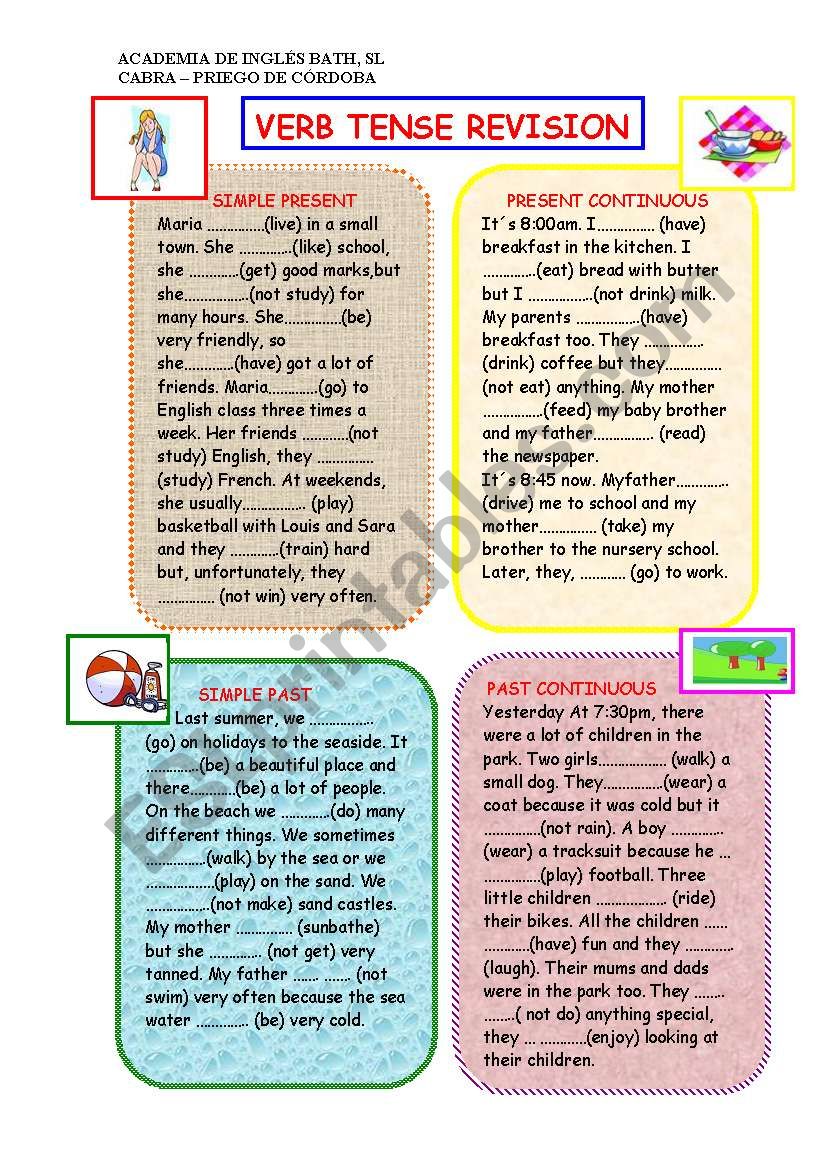 ACADEMIA DE INGLÉS BATH, SL
CABRA – PRIEGO DE CÓRDOBA
VERB TENSE REVISION
SIMPLE PRESENT
Maria ..............(live) in a small
town. She .............(like) school,
she ............(get) good marks,but
she................(not study) for
many hours. She..............(be)
very friendly, so
she............(have) got a lot of
friends. Maria............(go) to
English class three times a
week. Her friends ...........(not
study) English, they ..............
(study) French. At weekends,
she usually................ (play)
basketball with Louis and Sara
and they ............(train) hard
but, unfortunately, they
.............. (not win) very often.
PRESENT CONTINUOUS
It´s 8:00am. I.............. (have)
breakfast in the kitchen. I
.............(eat) bread with butter
but I ................(not drink) milk.
My parents ................(have)
breakfast too. They ...............
(drink) coffee but they..............
(not eat) anything. My mother
...............(feed) my baby brother
and my father............... (read)
the newspaper.
It´s 8:45 now. Myfather.............
(drive) me to school and my
mother.............. (take) my
brother to the nursery school.
Later, they, ........... (go) to work.
SIMPLE PAST
Last summer, we ................
(go) on holidays to the seaside. It
.............(be) a beautiful place and
there...........(be) a lot of people.
On the beach we ............(do) many
different things. We sometimes
...............(walk) by the sea or we
.................(play) on the sand. We
................(not make) sand castles.
My mother .............. (sunbathe)
but she ............. (not get) very
tanned. My father ...... ...... (not
swim) very often because the sea
water ............. (be) very cold.
PAST CONTINUOUS
Yesterday At 7:30pm, there
were a lot of children in the
park. Two girls................. (walk) a
small dog. They...............(wear) a
coat because it was cold but it
..............(not rain). A boy .............
(wear) a tracksuit because he ...
..............(play) football. Three
little children ................. (ride)
their bikes. All the children ......
............(have) fun and they ............
(laugh). Their mums and dads
were in the park too. They ........
........( not do) anything special,
they ... ............(enjoy) looking at
their children.
ESLprintables.com